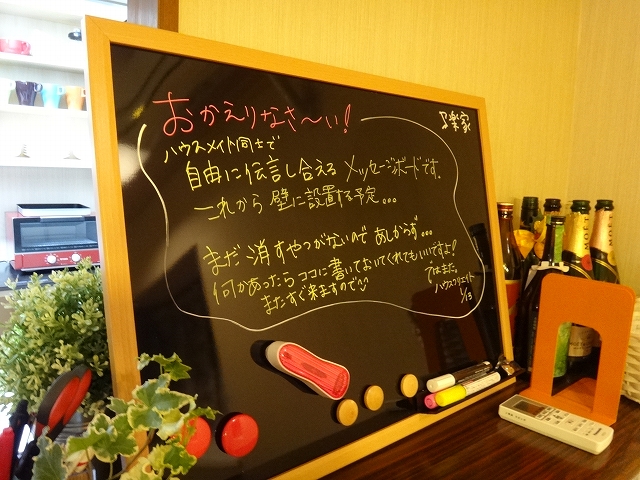 おかえりなさ〜い!
♪楽家
ハウスメイト同士で
自由に伝言し合える メッセージボードです。
これから 壁に設置する予定...
まだ 消すやつがないので あしからず...
何かあったら ココに 書いておいてくれてもいいですよ!
またすぐ来ますので〜
ではまた。
ハウスクリエイト
1/13
MOET
MOET